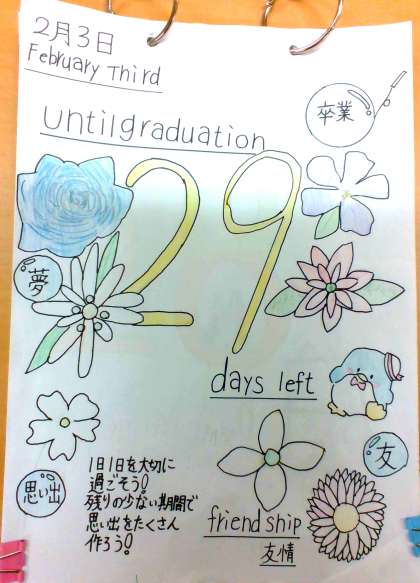 2月3日
February Third
Untilgraduation
卒業
29
夢
days left
友
思い出
1日1日を大切に
過ごそう!
残りの少ない期間で
思い出をたくさん
作ろう!
friendship
友情